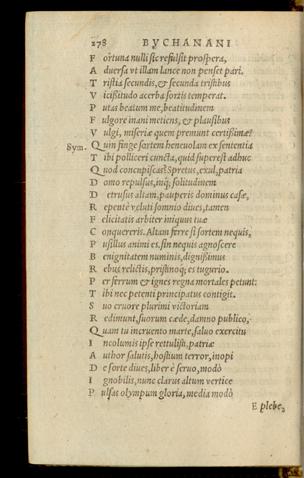 278 BVCHANANI
F ortuna nulli sic refulsit prospera,
A duersa vt illam lance non penset pari.
T ristia secundis, & secunda tristibus
V icißitudo acerba sortis temperat.
P utas beatum me, beatitudinem
F ulgore inani metiens, & plausibus
V ulgi, miseriæ quem premunt certißimæ?
Sym. Q uin finge sortem beneuolam ex sententia
T ibi polliceri cuncta, quid superest adhuc
Q uod concupiscas? Spretus, exul, patria
D omo repulsus, inq; solitudinem
D etrusus altam, pauperis dominus casæ,
R epentè veluti somnio diues, tamen
F elicitatis arbiter iniquus tuæ
C onquereris. Altam ferre si sortem nequis,
P usillus animi es. sin nequis agnoscere
B enignitatem numinis, dignißimus
R ebus relictis, pristinoq; es tugurio.
P er ferrum & ignes regna mortales petunt:
T ibi nec petenti principatus contigit.
S uo cruore plurimi victoriam
R edimunt, suorum cæde, damno publico,
Q uam tu incruento marte, saluo exercitu
I ncolumis ipse rettulisti, patriæ
A uthor salutis, hostium terror, inopi
D e sorte diues, liber è seruo, modò
I gnobilis, nunc clarus altum vertice
P ulsas olympum gloria, media modò
E plebe